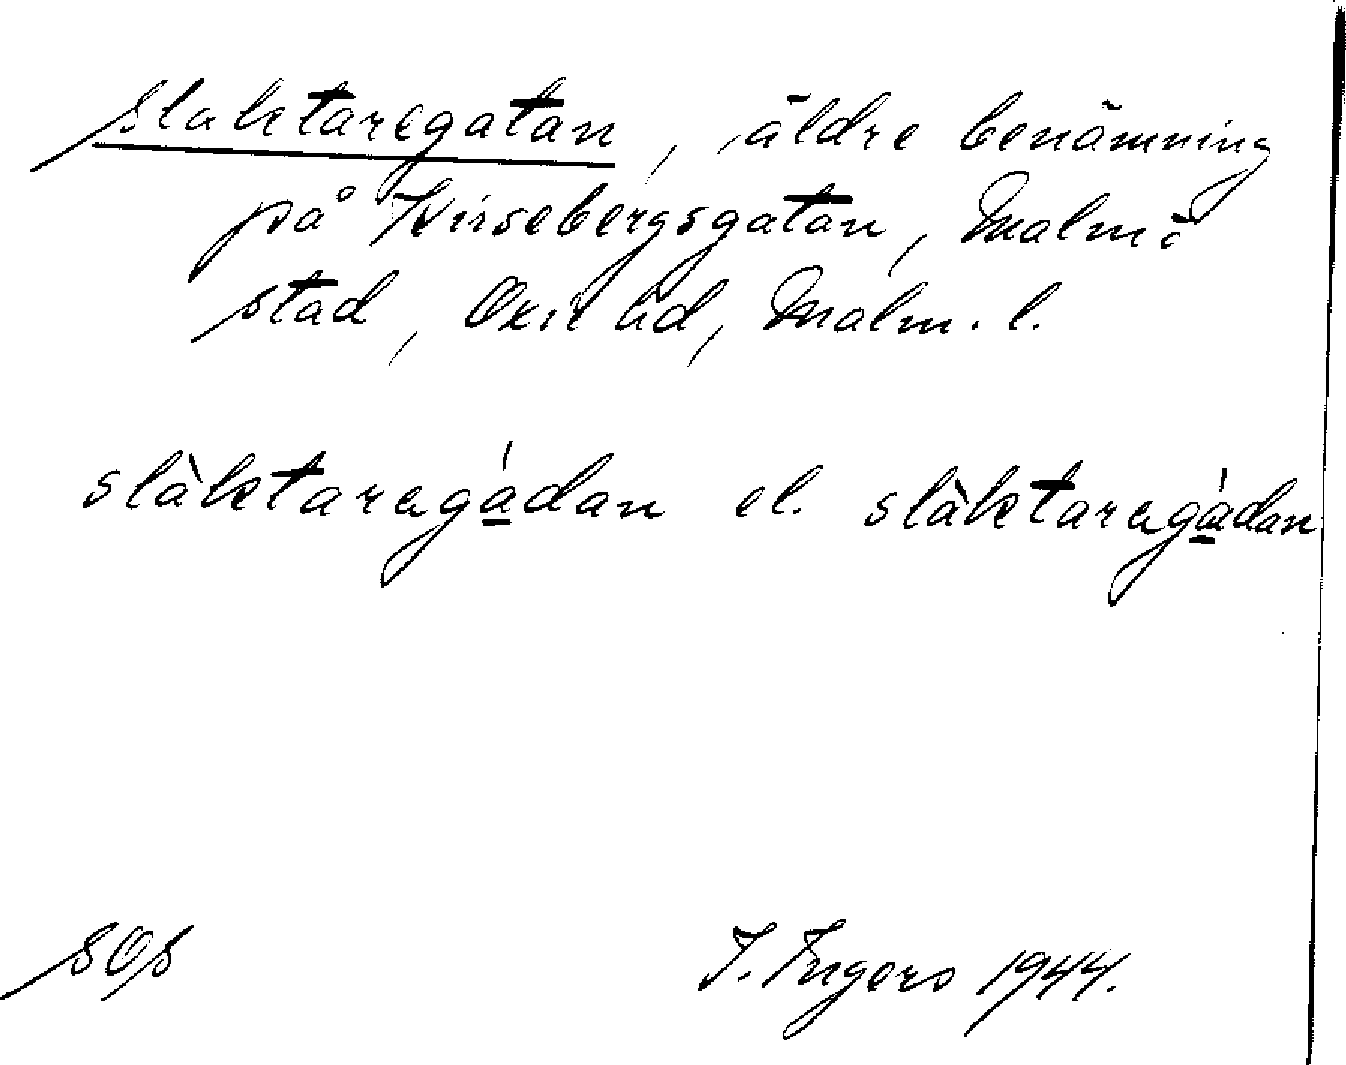 Slaktaregatan, äldre benämning
på Kirsebergsgatan, Malmö
stad, Oxie hd, Malm. l.
slàktaregádan el. slàktaregádan
SOS
I. Ingers 1944.